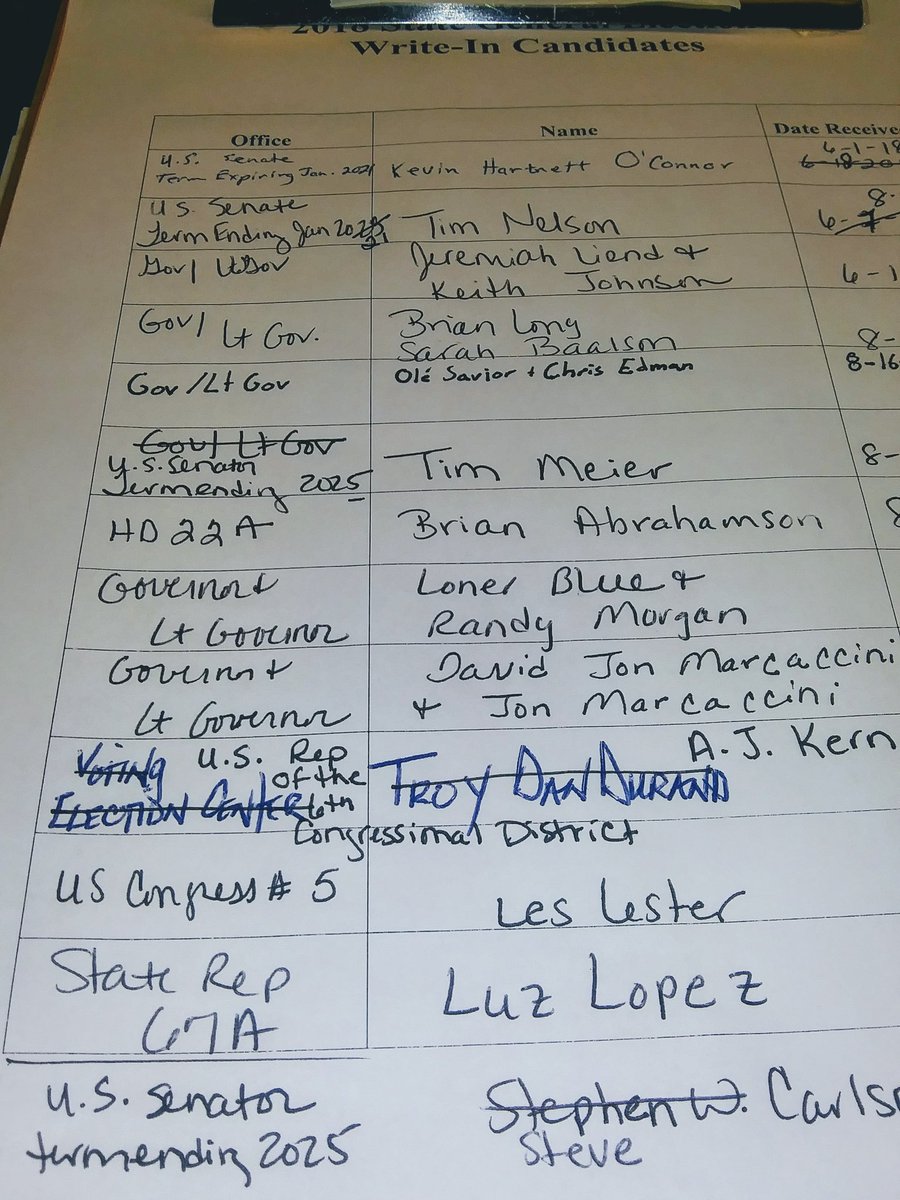 2018 State General Election
Write-In Candidates
Office Name Date Receive
U.S. Senate
Term Expiring Jan. 2021
Kevin Hartnett O'Connor
6-1-18
U.S. Senate
Term Ending Jan
Tim Nelson
8-
6-7
Gov/ Lt Gov
Jeremiah Liend +
Keith Johnson
6-1
Gov/
Lt Gov.
Brian Long
Sarah Baalson
8-
Gov/Lt Gov
Olé Savior + Chris Edman
8-16
Gov/ Lt Gov
U.S. Senator
Termending 2025
Tim Meier
8-
HD 22A
Brian Abrahamson
8
Governor +
Lt Governor
Loner Blue +
Randy Morgan
Governor +
Lt Governor
David Jon Marcaccini
+ Jon Marcaccini
Voting
Election Center
U.S. Rep
of the
6th
Congressional District
Troy Dan Durand
A.J. Kern
US Congress # 5
Les Lester
State Rep
67A
Luz Lopez
U.S. Senator
termending 2025
Stephen W. Carls
Steve